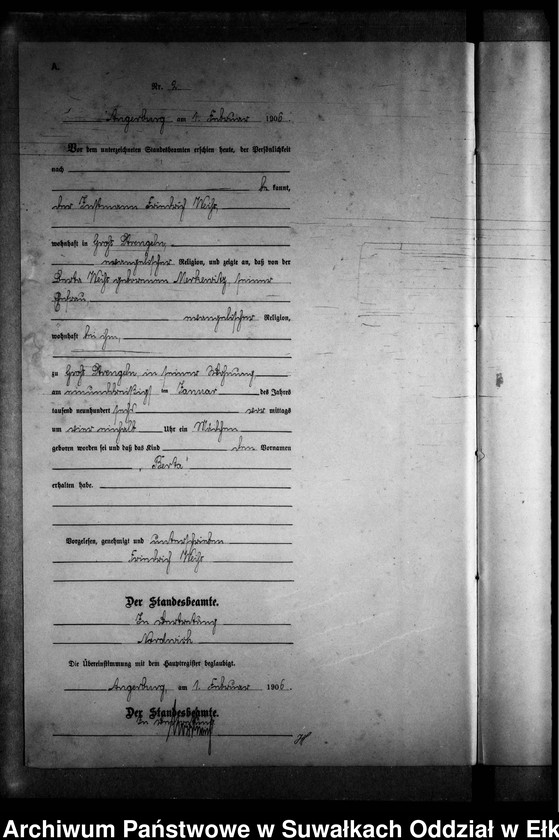 A.
Nr. 2
Angerburg am 1. Februar 1906.
Vor dem unterzeichneten Standesbeamten erschien heute, der Persönlichkeit
nach
be kannt,
der Instmann Friedrich
wohnhaft in Groß Strengeln,
evangelischer Religion, und zeigte an, daß von der
Berta geborenen seiner
Ehefrau
evangelischer Religion,
wohnhaft bei ihm,
zu Groß Strengeln in seiner Wohnung
am einunddreißigst en Januar des Jahres
tausend neunhundert sechs vor mittags
um vier einhalb Uhr ein Mädchen
geboren worden sei und daß das Kind den Vornamen
„Berta“
erhalten habe.
Vorgelesen, genehmigt und unterschrieben
Friedrich
Der Standesbeamte.
In Vertretung
Die Übereinstimmung mit dem Hauptregister beglaubigt.
Angerburg, am 1. Februar 1906.
Der Standesbeamte.
In Vertretung
Archiwum Państwowe w Suwałkach Oddział w Ełk